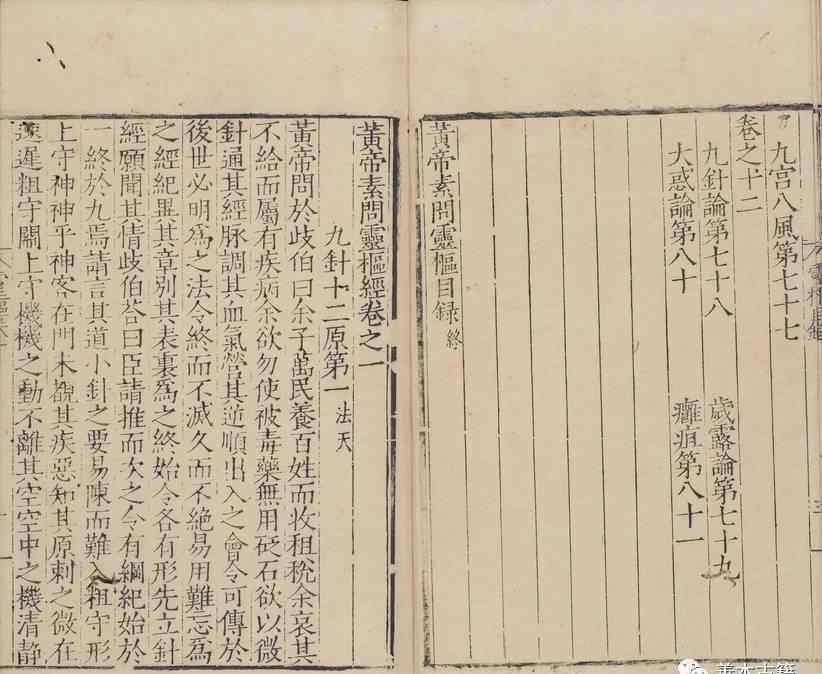 九宮八風第七十七
卷之十二
九針論第七十八 歲露論第七十九
大惑論第八十 癰疽第八十一
黃帝素問靈樞目録 終
黃帝素問靈樞經卷之一
九針十二原第一 法天
黃帝問於歧伯曰余子萬民養百姓而收租稅余哀其
不給而屬有疾病余欲勿使被毒藥無用砭石欲以微
針通其經脉調其血氣營其逆順出入之會令可傳於
後世必明爲之法令終而不滅久而不絕易用難忘爲
之經紀異其章別其表裏爲之終始令各有形先立針
經願聞其情歧伯荅曰臣請推而次之令有綱紀始於
一終於九焉請言其道小針之要易陳而難入粗守形
上守神神乎神客在門未覩其疾惡知其原刺之微在
速遲粗守關上守機機之動不離其空空中之機清静
善本古籍